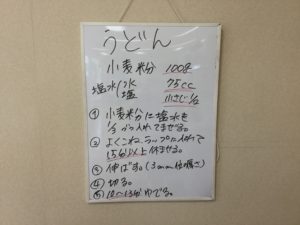 うどん
小麦粉 100g
塩水/水 75cc
塩 小さじ1/2
① 小麦粉に塩水を
1/3づつ入れてまぜる。
② よくこね、ラップに入れて
15分以上休ませる。
③ 伸ばす。(3mm位の厚さ)
④ 切る。
⑤ 12〜13分ゆでる。